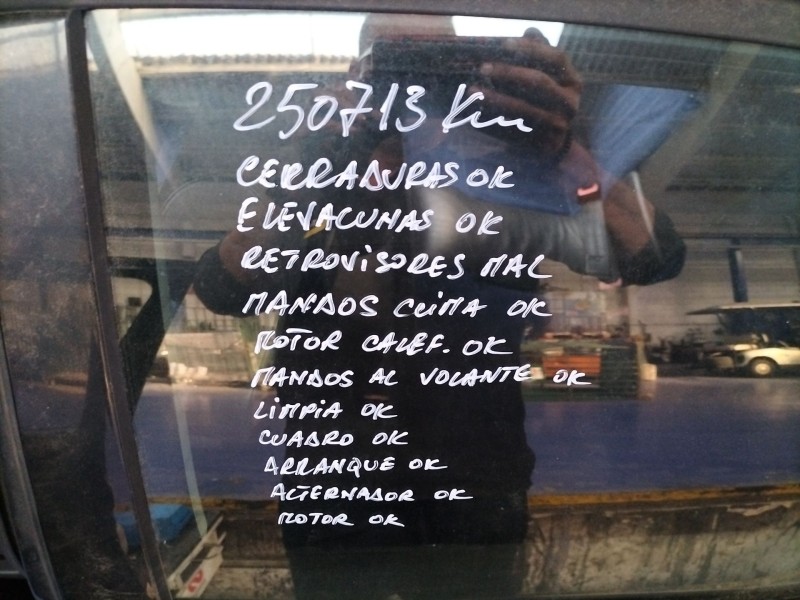 250713 Km
CERRADURAS OK
ELEVALUNAS OK
RETROVISORES MAL
MANDOS CLIMA OK
MOTOR CALEF. OK
MANDOS AL VOLANTE OK
LIMPIA OK
CUADRO OK
ARRANQUE OK
ALTERNADOR OK
MOTOR OK